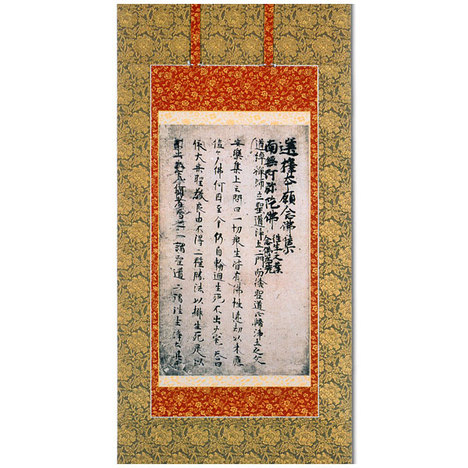 選擇本願念佛集
南無阿弥陀佛 往生之業
念佛為先
道綽禅師立聖道浄土二門而捨聖道正歸浄土之文
安樂集上云問曰一切衆生皆有佛性遠劫以来應
値多佛何因至今仍自輪廻生死不出火宅答曰
依大乗聖教良由不得二種勝法以排生死是以
不出火宅何者為二一謂聖道二謂往生浄土其